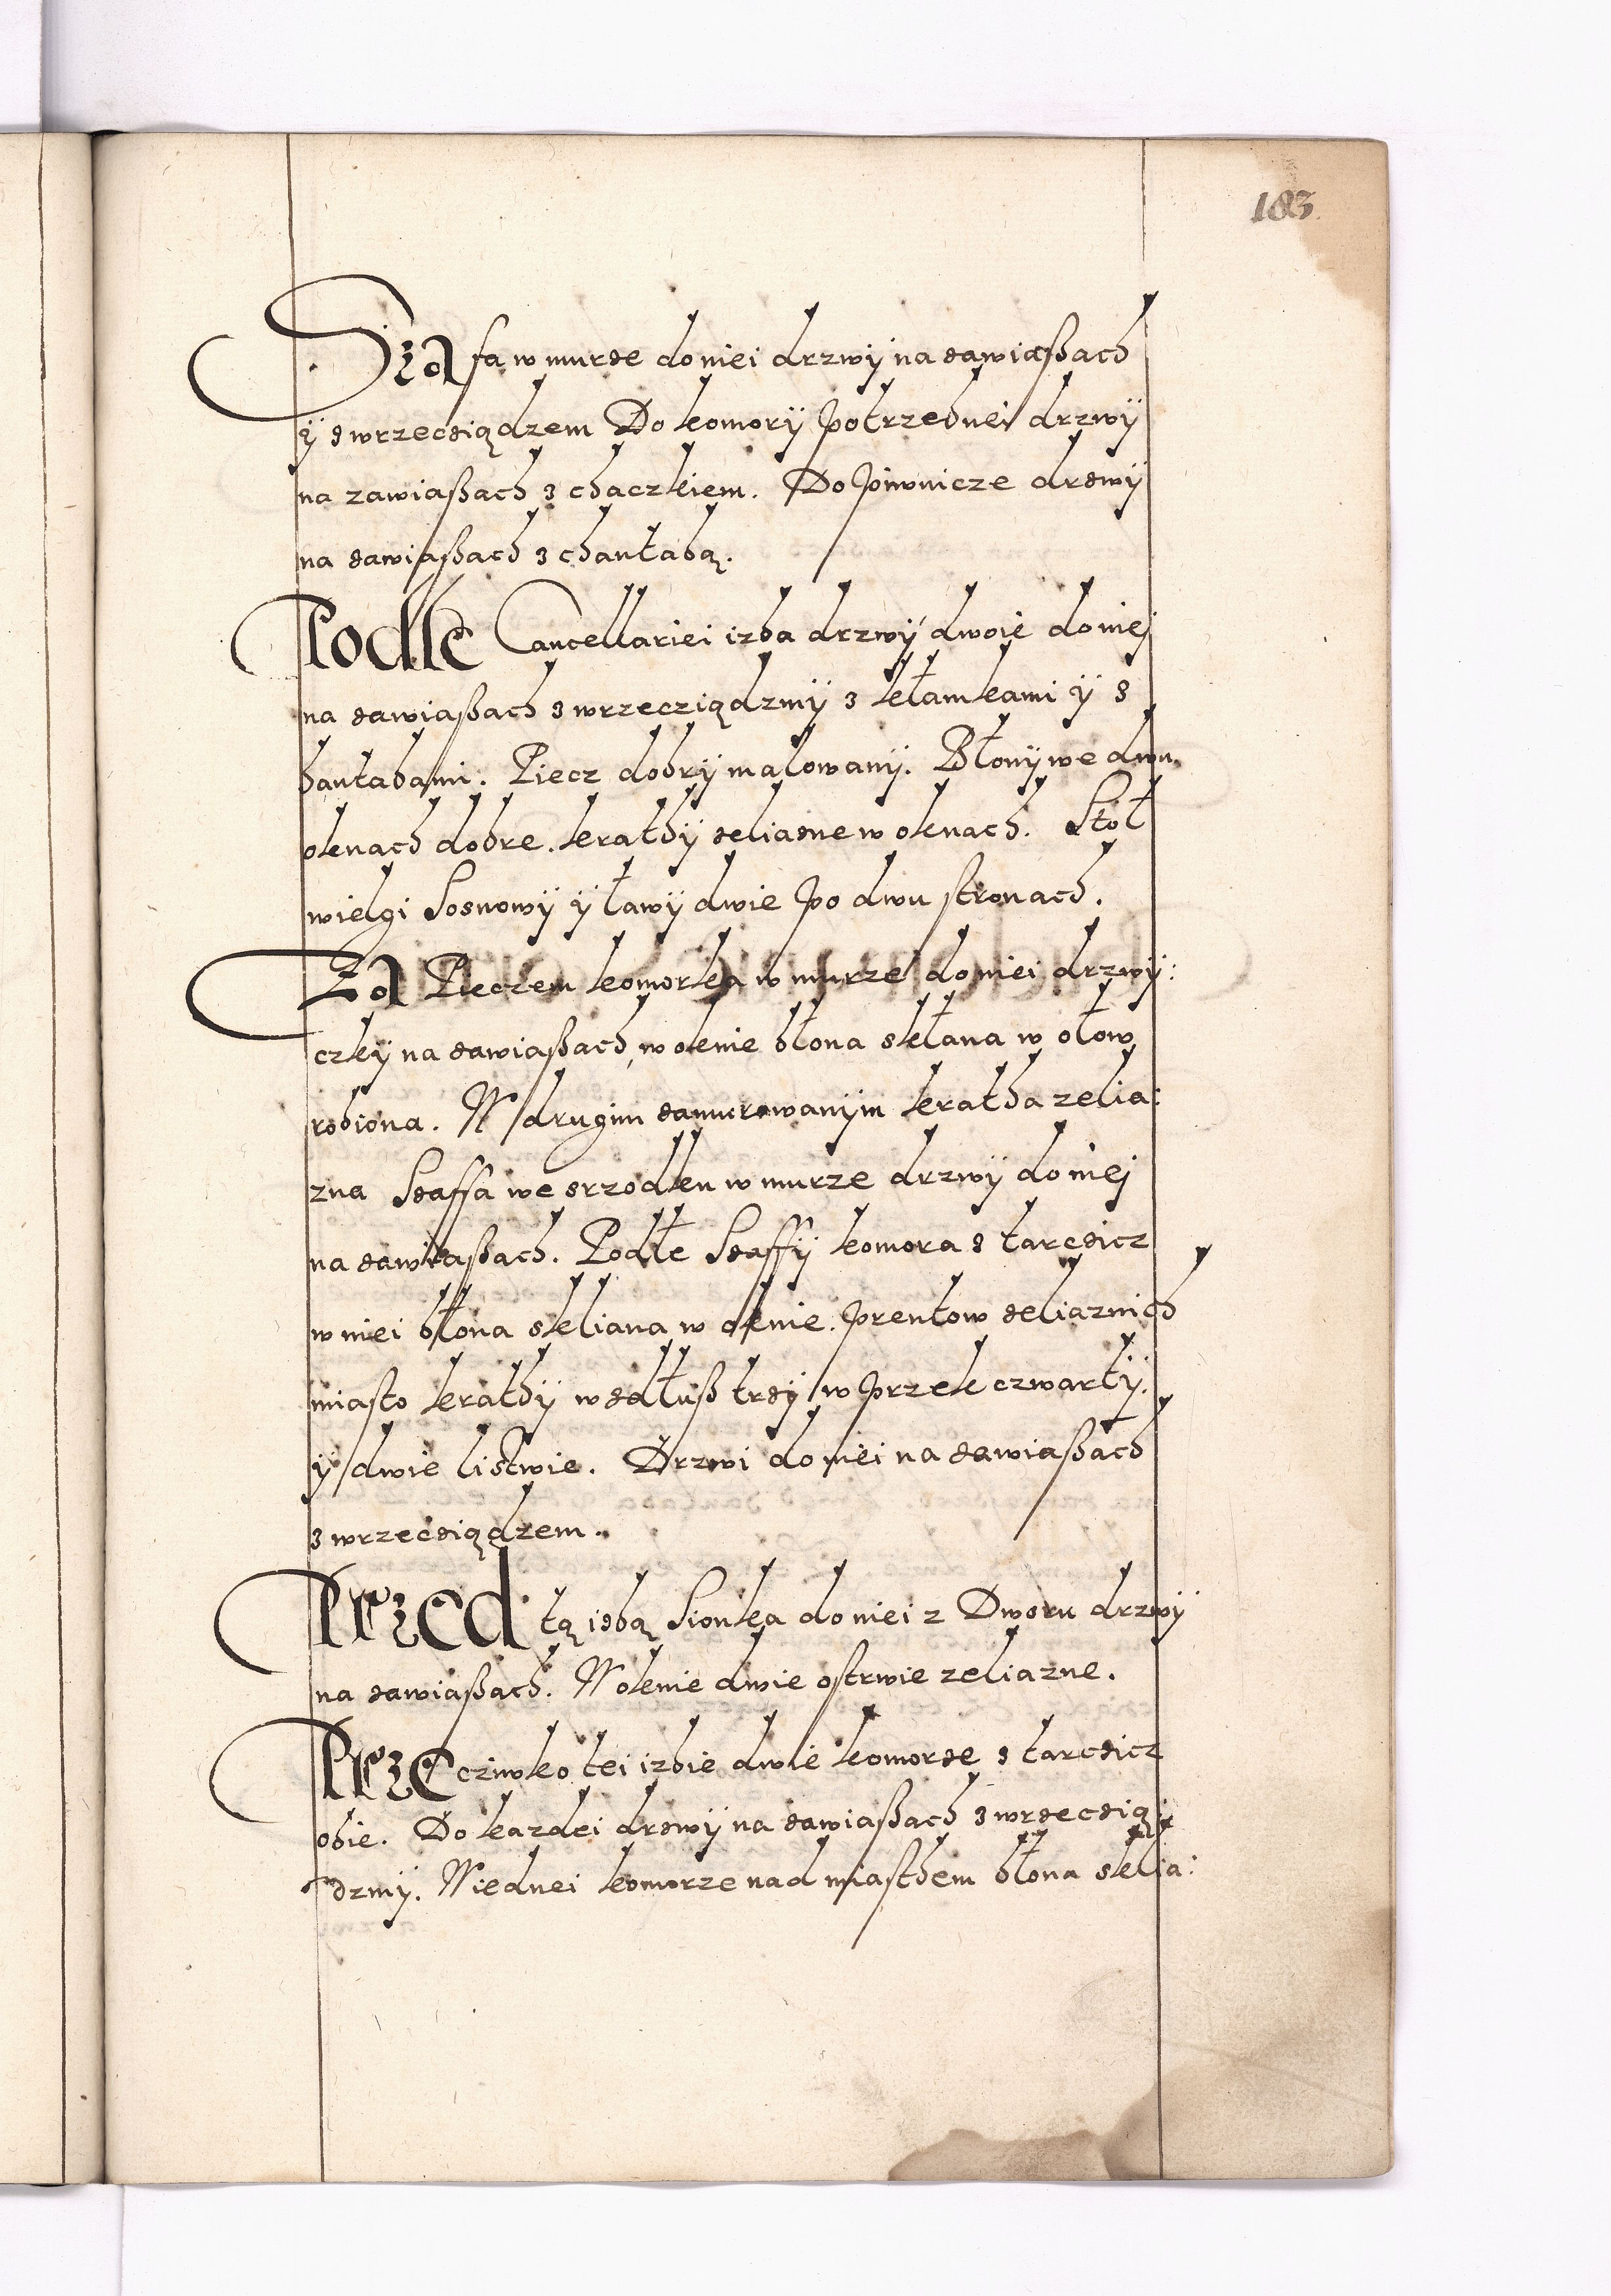 183
Szafa w murze do niei drzwÿ na zawiaßach
ÿ z wrzecziądzem Do komorÿ potrzebnei drzwÿ
na zawiaßach z chaczkiem. Do piwnicze drzwÿ
na zawiaßach z chantabą.
Podle Cancellariei izba drzwÿ dwoie do niej
na zawiaßach z wrzecziądzmÿ z kłamkami ÿ z
hantabami. Piecz dobrÿ malowanÿ. Błonÿ we dwu
oknach dobre. krathÿ zeliazne w oknach. Stoł
wielgi Sosnowÿ ÿ ławÿ dwie po dwu stronach.
Za Pieczem komorka w murze do niei drzwÿ:
czkÿ na zawiaßach, w oknie błona sklana w ołow
robiona. W drugim zamurowanÿm kratha zelia:
zna Szaffa we srzodku w murze drzwÿ do niej
na zawiaßach. Podle Szaffÿ komora z tarczicz
w niei błona skliana w oknie. prentow zeliaznich
miasto krathÿ wzdłuß trzÿ w przek czwartÿ.
ÿ dwie listwie. Drzwi do niei na zawiaßach
z wrzecziądzem.
Przed tą izbą Sionka do niei z Dworu drzwÿ
na zawiaßach. W oknie dwie ostrwie zeliazne.
Przecziwko tei izbie dwie komorze z tarczicz
obie. Do kazdei drzwÿ na zawiaßach z wrzeczią:
dzmÿ. W iednei komorze nad miasthem błona sklia: